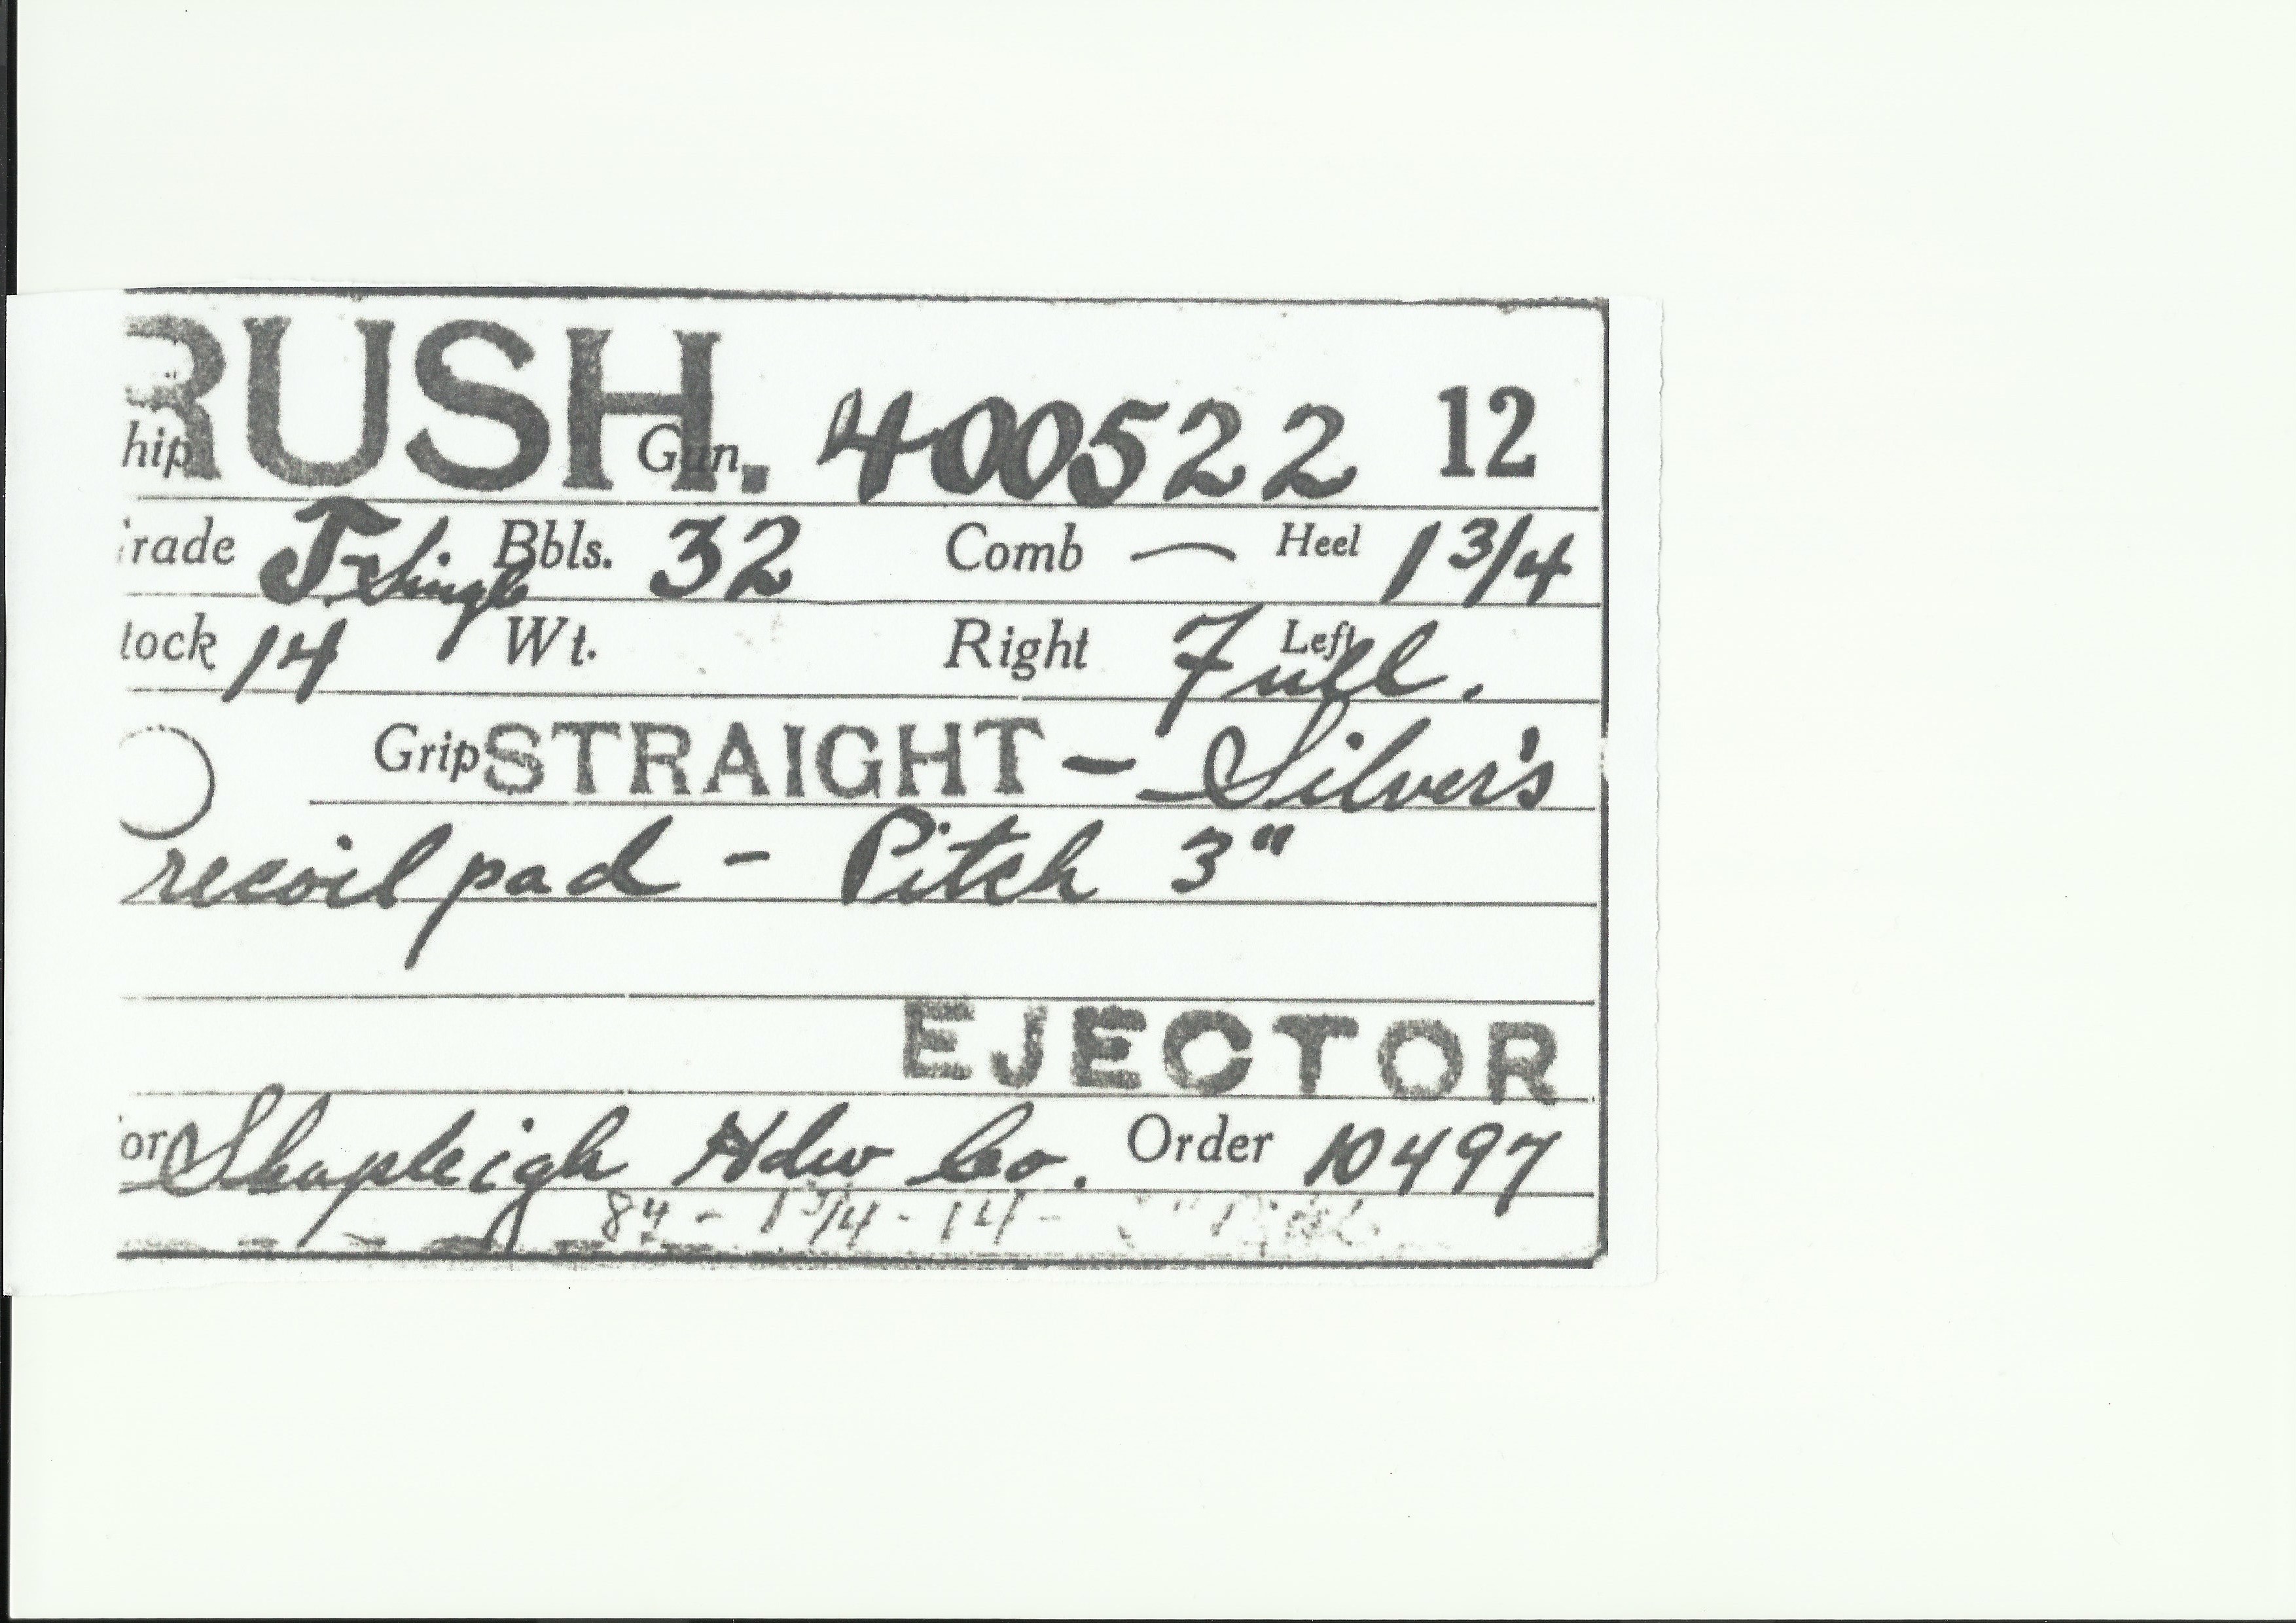 RUSH.
hip Gun. 400522 12
rade J Single Bbls. 32 Comb — Heel 1 3/4
tock 14 Wt. Right Left Full.
Grip STRAIGHT - Silver's
recoil pad - Pitch 3"
EJECTOR
or Shapleigh Hdw Co. Order 10497
84 - 1 3/4 - 14 -